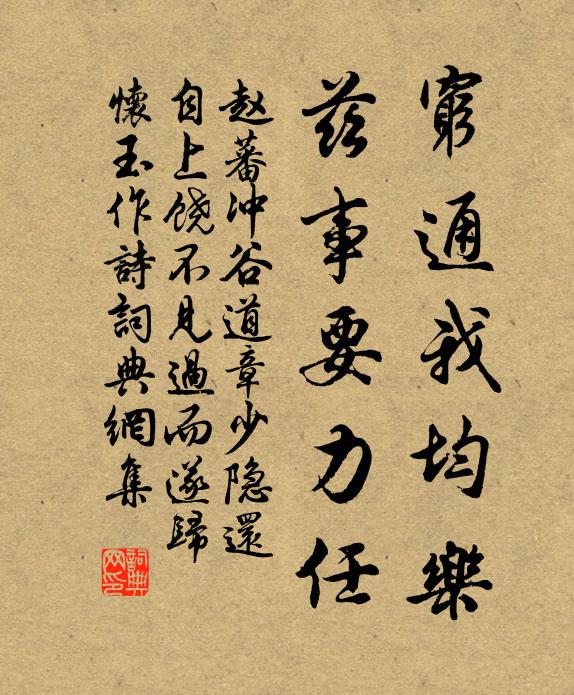 窮通我均樂
茲事要力任
赵蕃冲谷道章少隐還
自上饶不見過而遂歸
懷玉作詩詞典網集
詞典网印